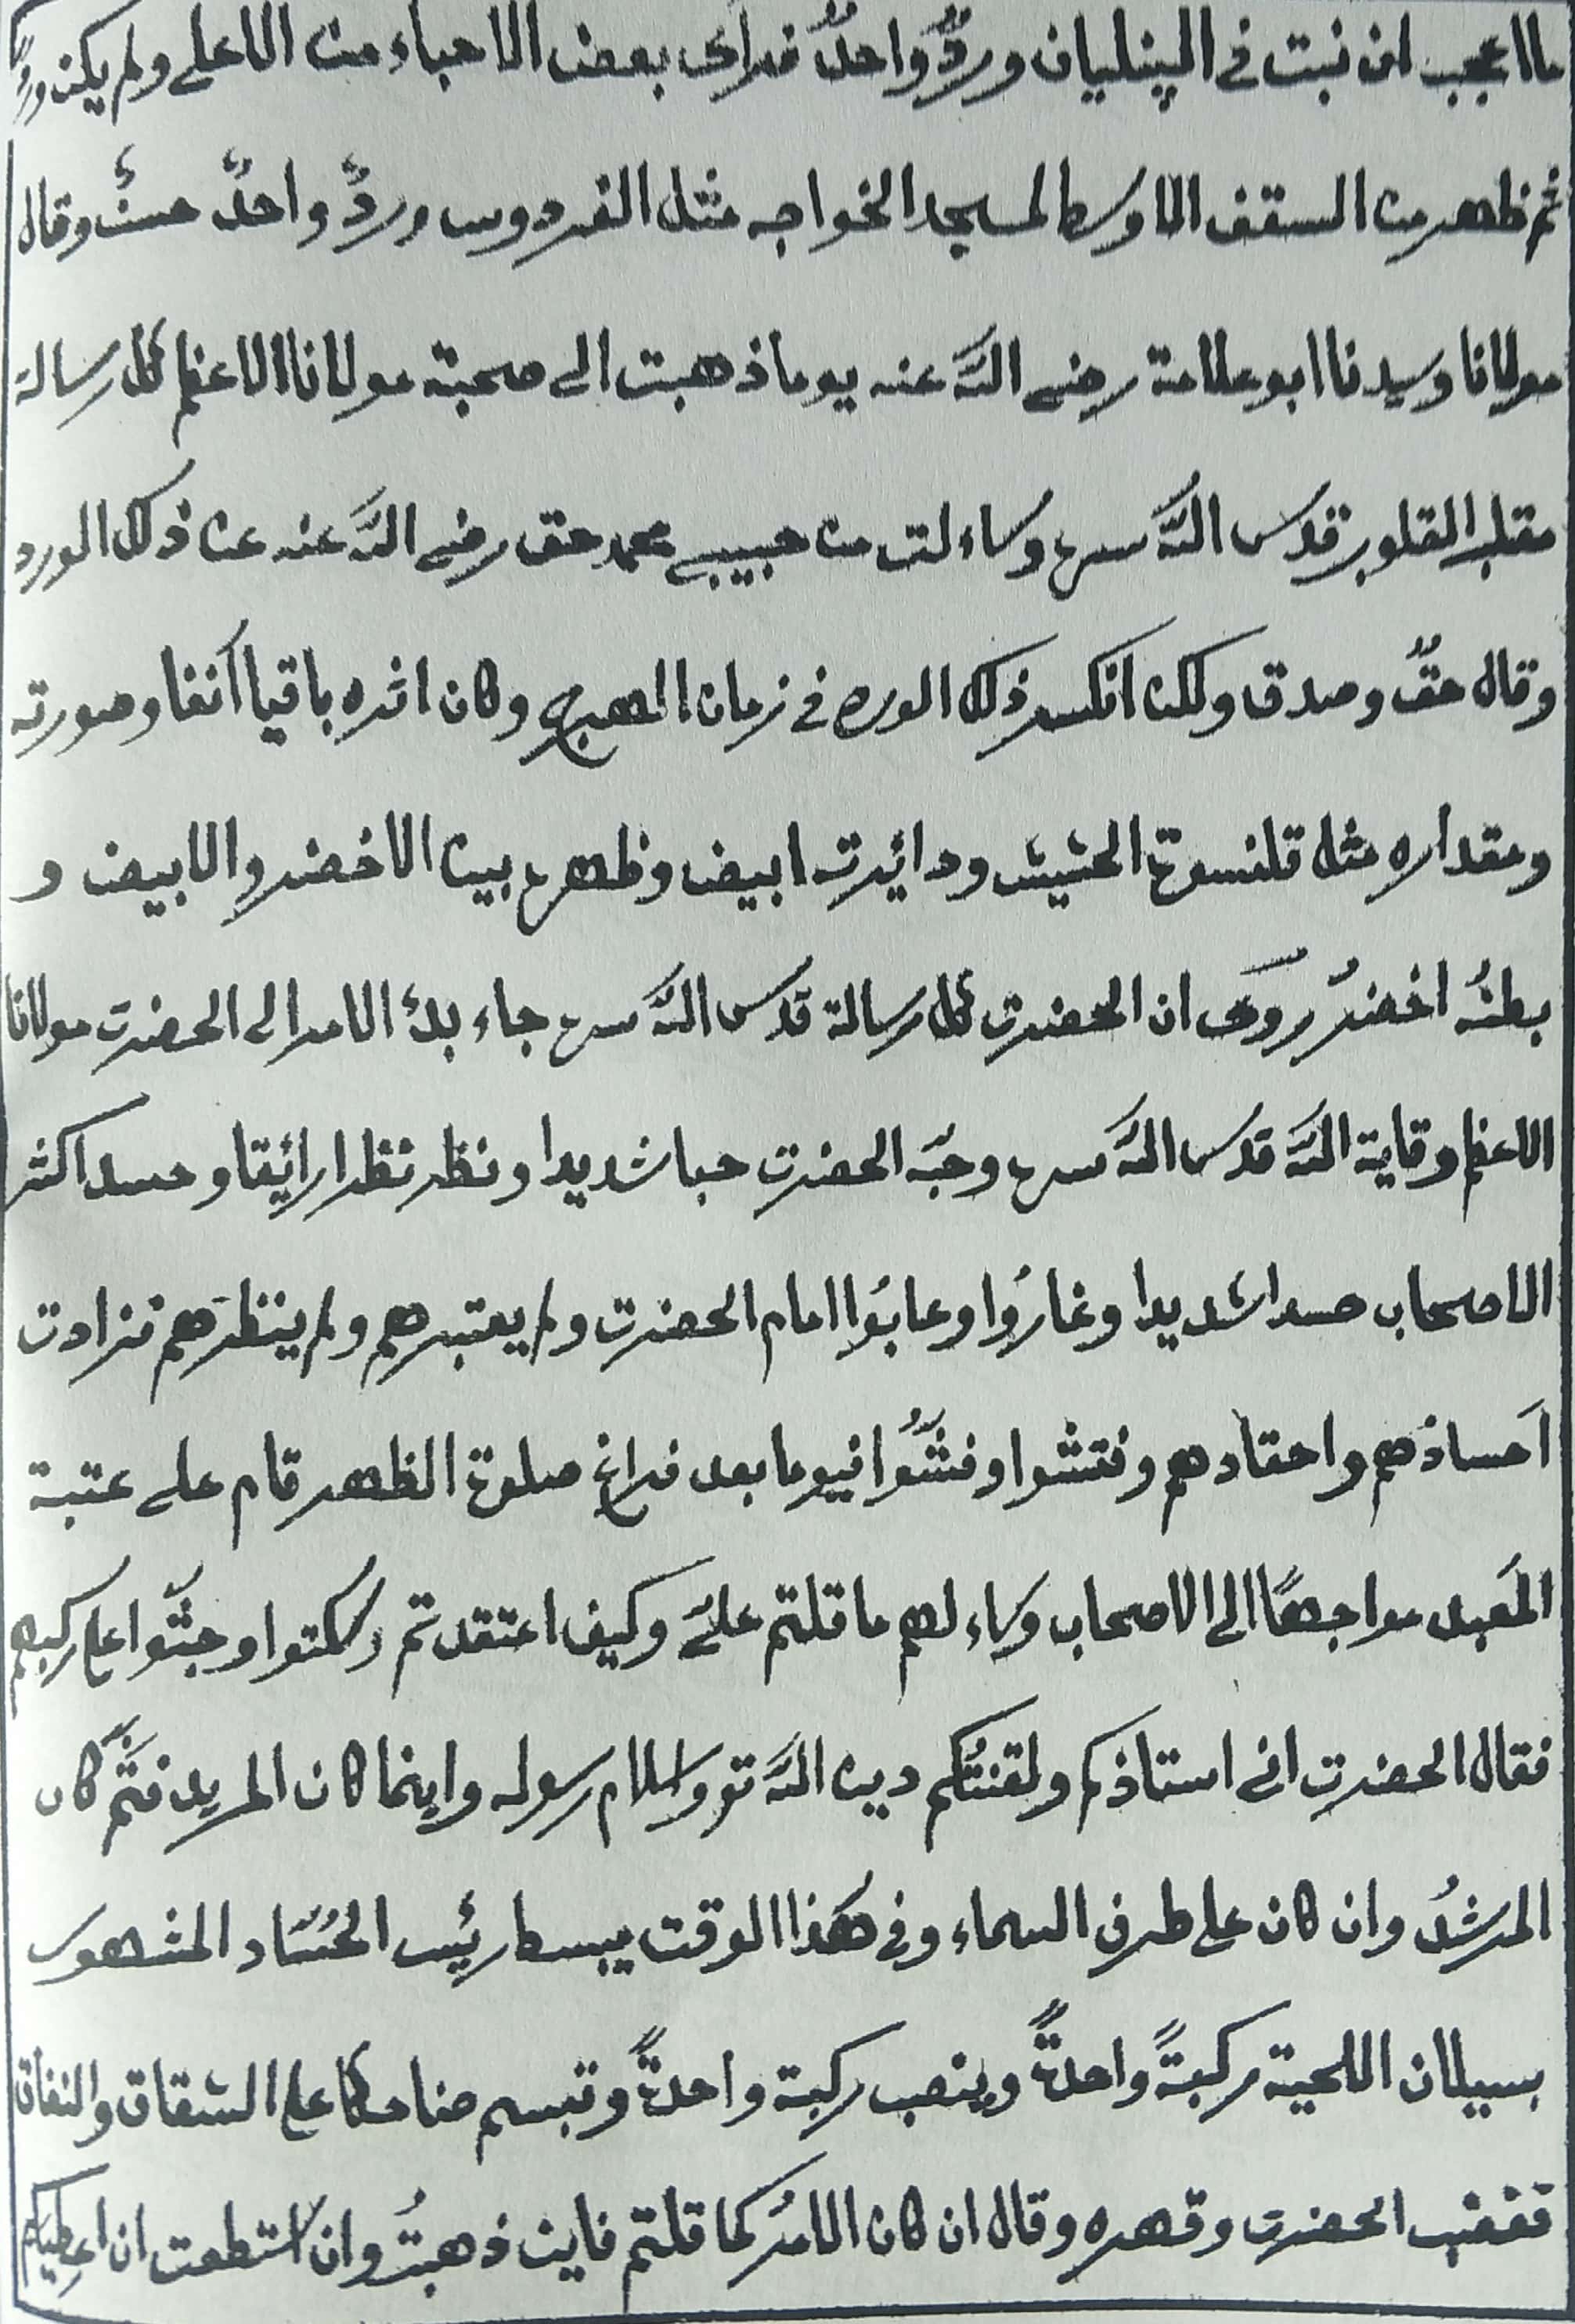 ما اعجب ان نبت في الپنليان وردٌ واحدٌ فرأى بعض الاحباء من الاعلى ولم يكن وردٌ
ثم ظهر من السقف الاوسط لمسجد الخواجه مثل الفردوس وردٌ واحدٌ حسنٌ وقال
مولانا وسيدنا ابو علامة رضى الله عنه يوما ذهبت الى صحبة مولانا الاعظم كل رسالة
مقلب القلوب قدس الله سره وساءلت من حبيبي محمد حق رضي الله عنه عن ذلك الورد
وقال حقٌ وصدق ولكن انكسر ذلك الورد في زمان الهرج وكان اثره باقيا آنفا وصورته
ومقداره مثل قلنسوة الحشيش ودائرته ابيض وظهره بين الاخضر والابيض و
بطنُه اخضرُ روى ان الحضرت كل رسالة قدس الله سره جاء بدأ الامر الى الحضرت مولانا
الاعظم وقاية الله قدس الله سره وحبّه الحضرت حبا شديدا ونظر نظرا رائقا وحسد اكثر
الاصحاب حسدا شديدا وغارُوا وعابُوا امام الحضرت ولم يعتبرهم ولم ينظرهم فزادت
أحسادهم واحقادهم وفتشوا وفشُّوا فيوما بعد فراغ صلوة الظهر قام على عتبة
المَعبد مواجهًا الى الاصحاب وساءلهم ما قلتم علىّ وكيف اعتقدتم وسكتوا وجثّوا على ركبهم
فقال الحضرت انى استاذكم ولقنتُكم دين الله تع واسلام رسوله واينما كان المريد فثمّ كان
المرشدُ وان كان على طرف السماء وفي هٰذا الوقت يبسط رئيس الحُسّاد المشهور
بسيلان اللحية ركبةً واحدةً وينصب ركبة واحدةً وتبسم ضاحكا على الشقاق والنفاق
فغضب الحضرت وقهره وقال ان كان الامرُ كما قلتم فاين ذهبتُ وان استطعت ان اعطيكم